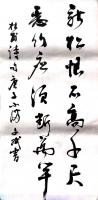 新松恨不高千尺
惡竹應須斬萬竿
杜甫詩句
書